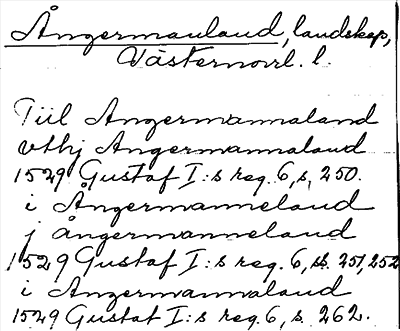 Ångermanland, landskap,
Västernorrl. l.
Tiil Angermannaland
vthj Angermannaland
1529 Gustaf I:s reg. 6, s. 250.
i Ångermanneland
j ångermanneland
1529 Gustaf I:s reg. 6, ss. 251, 252
i Angermannaland
1529 Gustaf I:s reg. 6, s. 262.